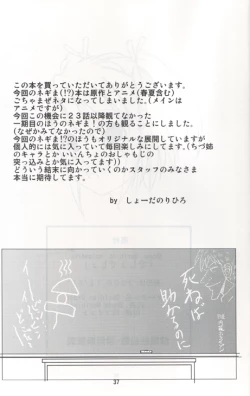 この本を買っていただいてありがとうございます。
今回のネギま(!?)本は原作とアニメ(春夏含む)
ごちゃまぜネタになってしまいました。(メインは
アニメですが)
今回この機会に２３話以降観てなかった
一期目のほうのネギま！の方も観ることにしました。
(なぜかみてなかったので)
今回のネギま!?のほうもオリジナルな展開していますが
個人的には気に入っていて毎回楽しみにしてます。(ちづ姉
のキャラとか いいんちょのおしゃもじの
突っ込みとかが気に入ってます)
どういう結末に向かっていくのかスタッフのみなさま
本当に期待してます。
by しょーだのりひろ
死ねば
助かるのに
37